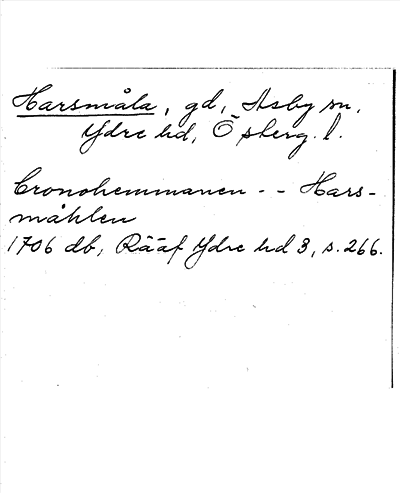 Harsmåla, gd, Asby sn,
Ydre hd, Österg. l.
Cronohemmanen -- Hars-
måhlen
1706 db, Rääf Ydre hd 3, s. 266.